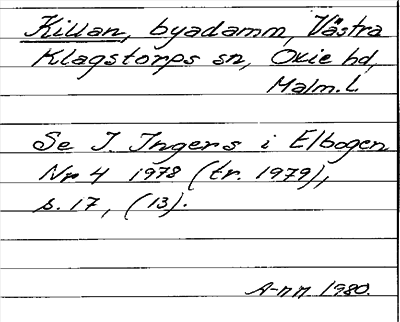 Killan, byadamm, Västra
Klagstorps sn, Oxie hd,
Malm. L.
Se I. Ingers i Elbogen
Nr 4 1978 (tr. 1979),
s. 17, (13).
A-nn 1980.